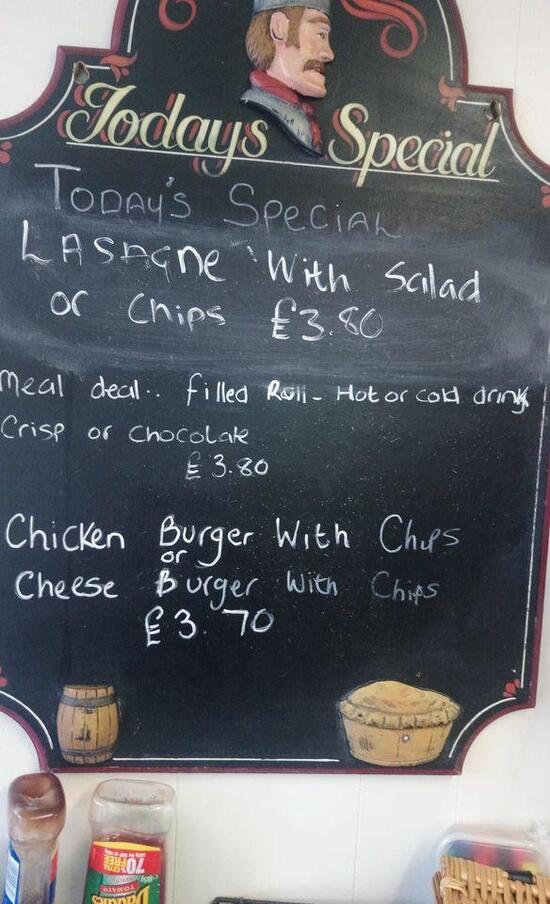 Todays Special
TODAY'S SPECIAL
LASAGNE With Salad
or Chips £3.80
Meal deal.. filled Roll - Hot or cold drink
Crisp or chocolate
£3.80
Chicken Burger With Chips
or
Cheese Burger With Chips
£3.70
70%
EXTRA
FREE
TOMATO
Daddies